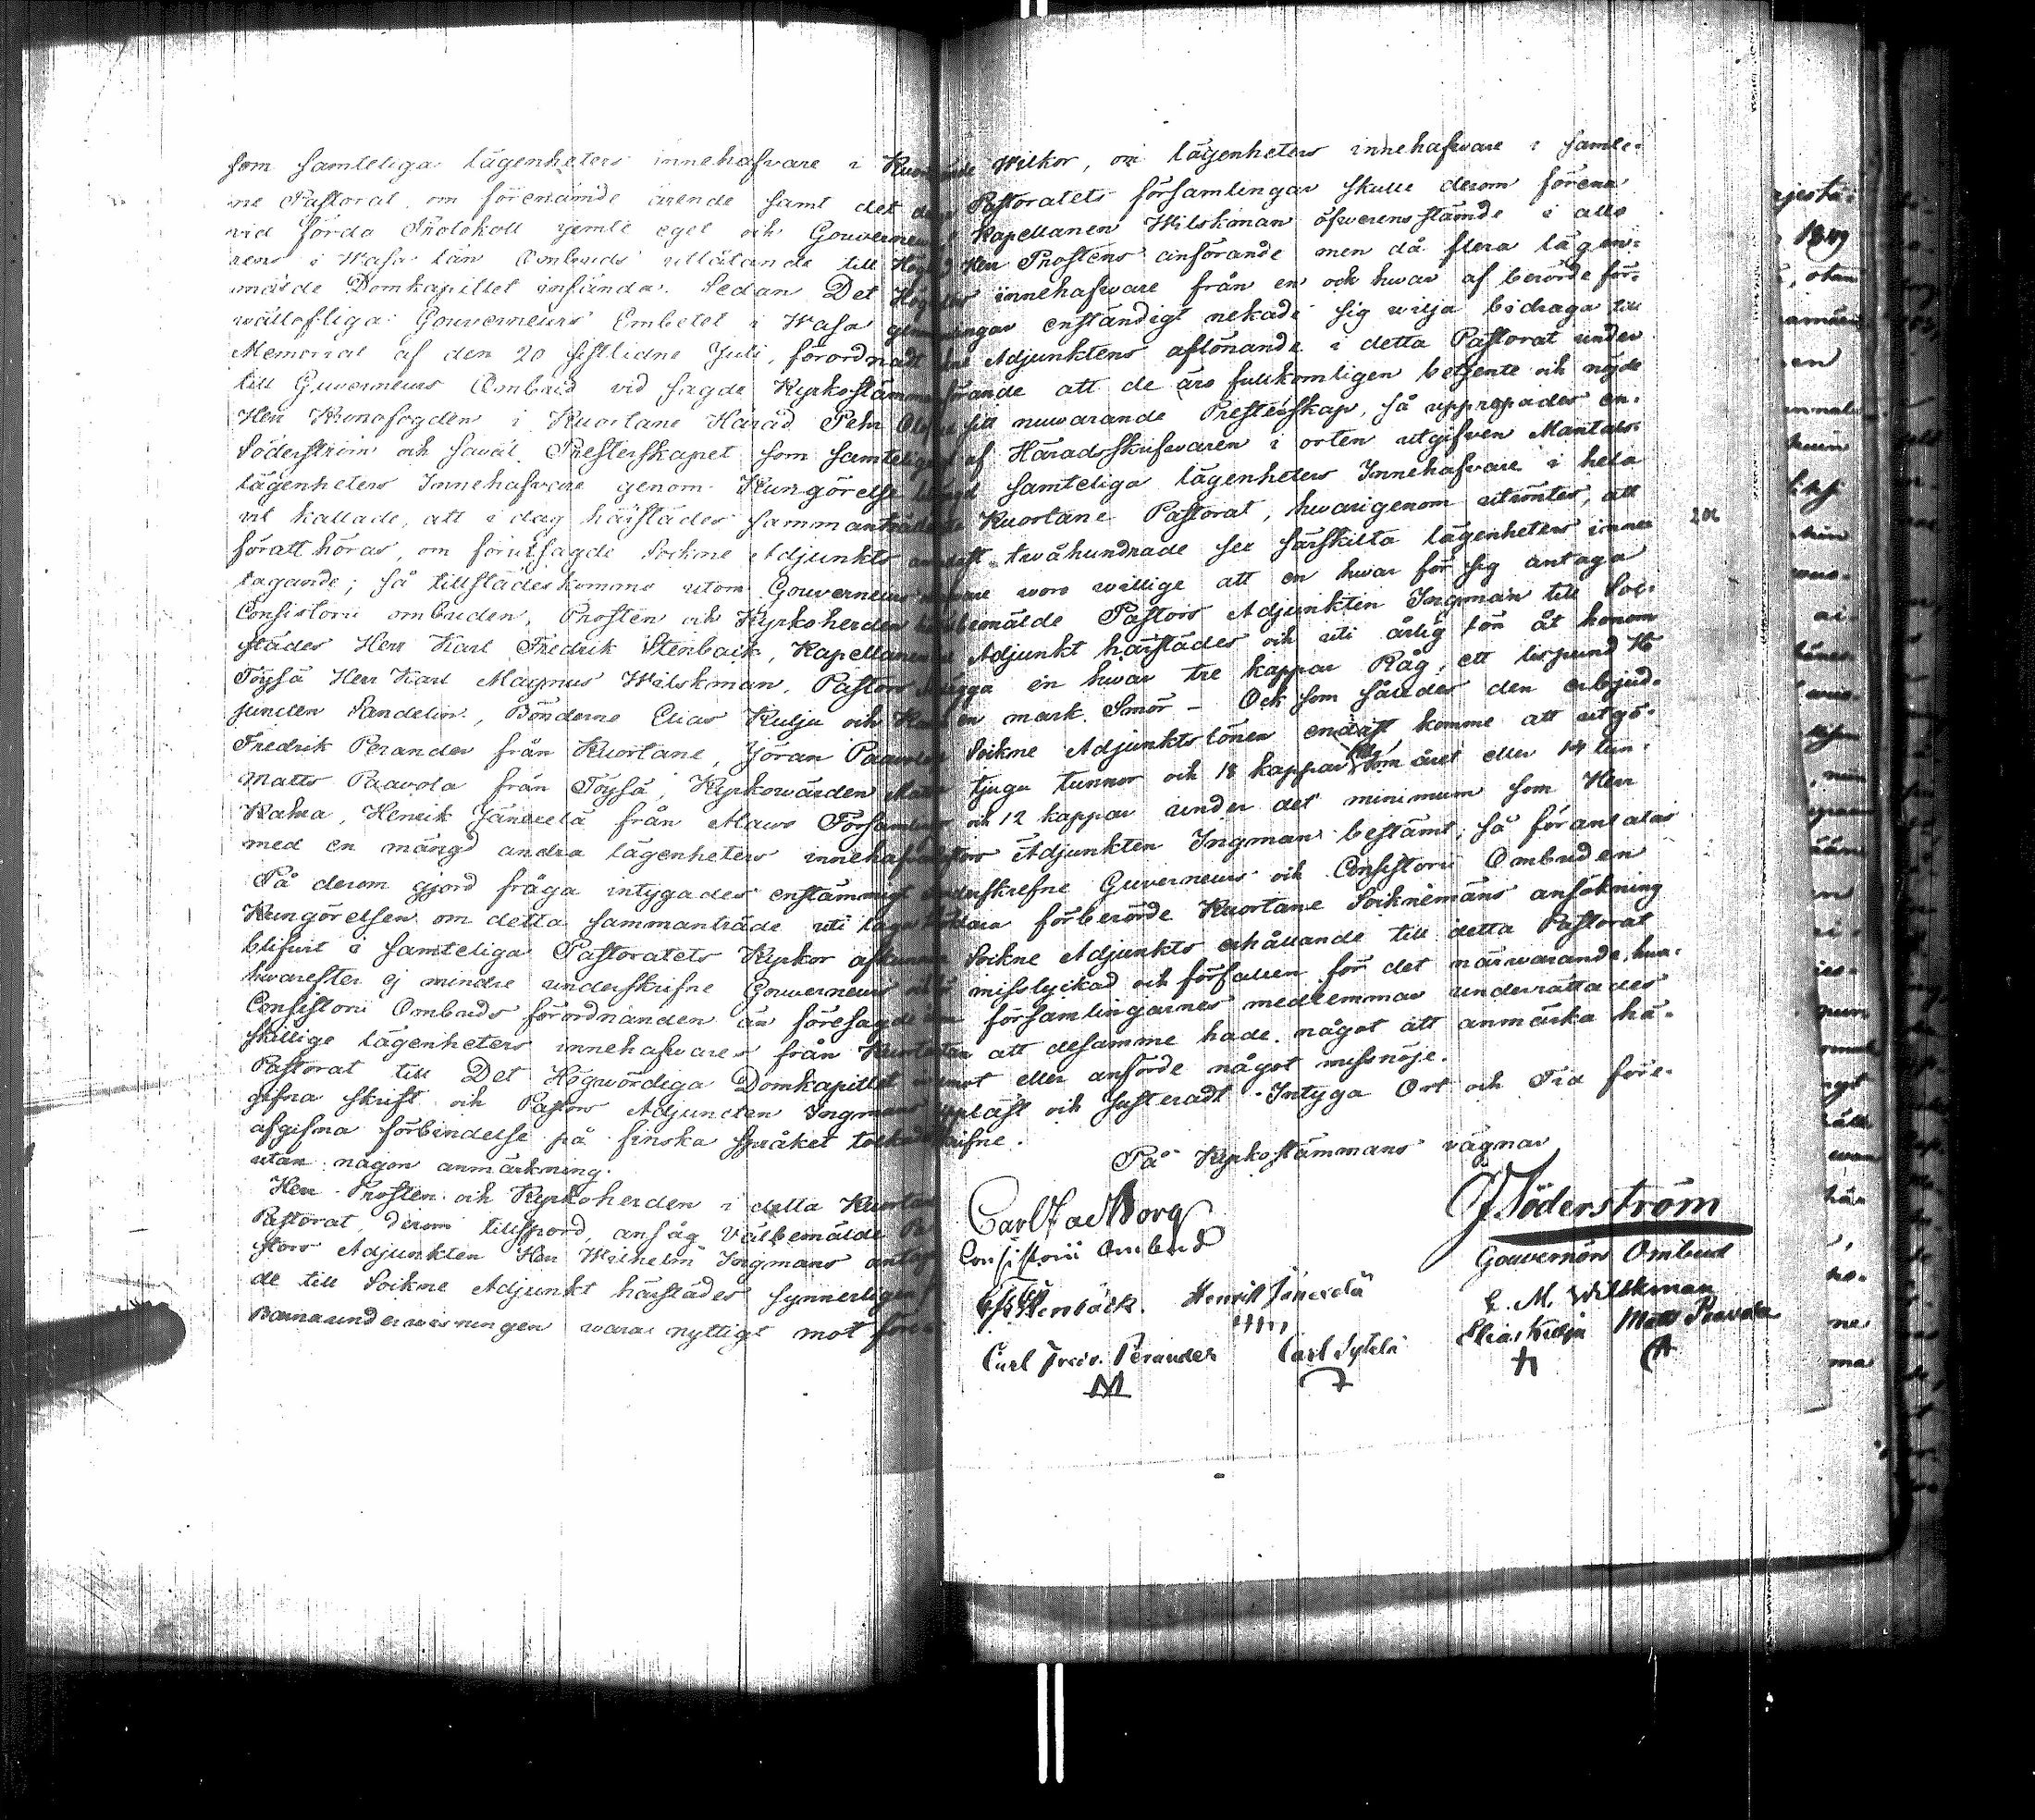 som samteliga lägenheters innehafware i Kuor
ne Pastorat, om förenämde ärende samt det
vid förda Protokoll jemte eget och Gouverneu
rens i Wasa län Ombuds utlåtande till Hög
mälde Domkapitlet insända. Sedan Det Hög
wällofliga Gouverneurs Embetet i Wasa genom
Memorial af den 20 sistlidne Juli, förordnadt
till Guverneurs Ombud vid sagde Kyrkostämma
Herr Kronofogden i Kuortane Härad Pehr Olof
Söderström och såwäl Presterskapet som samtelige
lägenheters Innehafware genom Kungörelse
vit kallade, att i dag härstädes sammanträda
för att höras, om förutsagde Sockne Adjunkts an
tagande; så tillstädeskommo utom Gouverneurs och
Consistorii ombuden, Prosten och Kyrkoherden här
städes Herr Karl Fredrik Stenbäck, Kapellanen i
Töysä Herr Karl Magnus Wilskman, Pastors Ad
juncten Sandelin, Bönderne Elias Kulju och Karl
Fredrik Perander från Kuortane, Jöran Paavola
Matts Paavola från Töysä, Kyrkowärden Matts
Rahra, Henrik Jäneselä från Alawo Församling
med en mängd andra lägenheters innehafware
På derom gjord fråga intygades enstämmigt
Kungörelsen om detta sammanträde uti laga
blifwit i samteliga Pastoratets Kyrkor afkunnad
hwarefter ej mindre underskrifne Gouverneurs och
Consistorii Ombuds förordnanden än föresagde
skillige lägenheters innehafwares från Kuortane
Pastorat till Det Högwördiga Domkapitlet in
gifna skrift och Pastors Adjuncten Ingmans
afgifna förbindelse på finska språket tolkades
utan någon anmärkning.
Herr Prosten och Kyrkoherden i detta Kuortane
Pastorat, derom tillspord, ansåg Välbemälde Pa
stors Adjunkten Herr Wilhelm Ingmans antagan
de till Sockne Adjunkt härstädes synnerligen för
Barnaunderwisningen wara nyttigt mot före
nde Wilkor, om lägenheters innehafware i samte-
Pastoratets församlingar skulle derom förena
Kapellanen Wilskman öfwerensstämde i allo
Herr Prostens anförande men då flera lägen-
innehafware från en och hwar af berörde för-
ingar enständigt nekade sig wilja bidraga till
Adjunktens aflönande i detta Pastorat under
förande att de äro fullkomligen betjente och nöjde
sitt nuwarande Presterskap, så uppropades en-
af Häradsskrifwaren i orten utgifwen Mantals-
längd samteliga lägenheters Innehafware i hela
Kuortane Pastorat, hwarigenom utröntes, att
endast twåhundrade sex särskilta lägenheters inne- 206
woro willige att en hwar för sig antaga
bemälde Pastors Adjunkten Ingman till Soc-
Adjunkt härstädes och uti årlig lön åt honom
en hwar tre kappar Råg, ett lispund Hö
en mark Smör – Och som således den erbjud-
Sockne Adjunktslönen endast komme att utgö-
tjugu tunnor och 18 kappar om året eller 14 tun-
och 12 kappar under det minimum som Herr
Adjunkten Ingman bestämt; så föranlåtas
underskrefne Guverneurs och Consistorii Ombuden
förklara förberörde Kuortane Sockniemäns ansökning
Sockne Adjunkts erhållande till detta Pastorat
misslyckad och förfallen för det närwarande, hwar-
församlingarnes medlemmar underrättades
utan att desamme hade något att anmärka hä-
emot eller anförde något missnöje.
Uppläst och Justeradt. Intyga Ort och Tid före-
skrifne.
På Kyrkostämmans vägnar
Carl Jac Borg
Consistorii Ombud
Söderström
Gouvernörs Ombud
Stenbäck. Henrik Jäneselä
C. M. Wilskman
Carl Fredr. Perander
Elias Kulju Matts Paavola